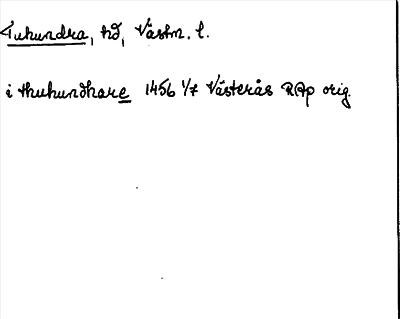 Tuhundra, hd, Västm. l.
i thuhundhare 1456 1/7 Västerås RAp orig.